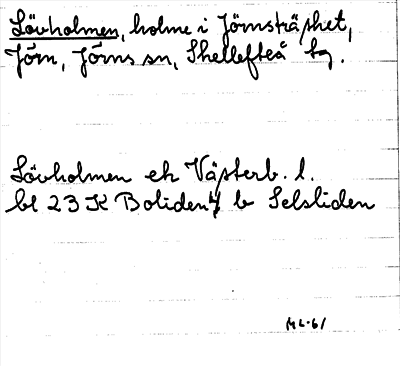 Lövholmen, holme i Jörnsträsket,
Jörn, Jörns sn, Skellefteå tg.
Lövholmen ek Västerb. l.
bl 23 K Boliden b Selsliden
ML-61